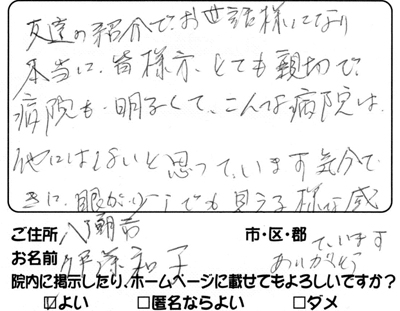 友達の紹介で、お世話様になり
本当に、皆様方、とても親切で
病院も、明るくて、こんな病院は、
他にはないと思って、います気分で
に、眼が でも見える様な感
ご住所 八潮市 市・区・郡
て、います
お名前 伊藤和子 ありがとう
院内に掲示したり、ホームページに載せてもよろしいですか?
☑よい □匿名ならよい □ダメ